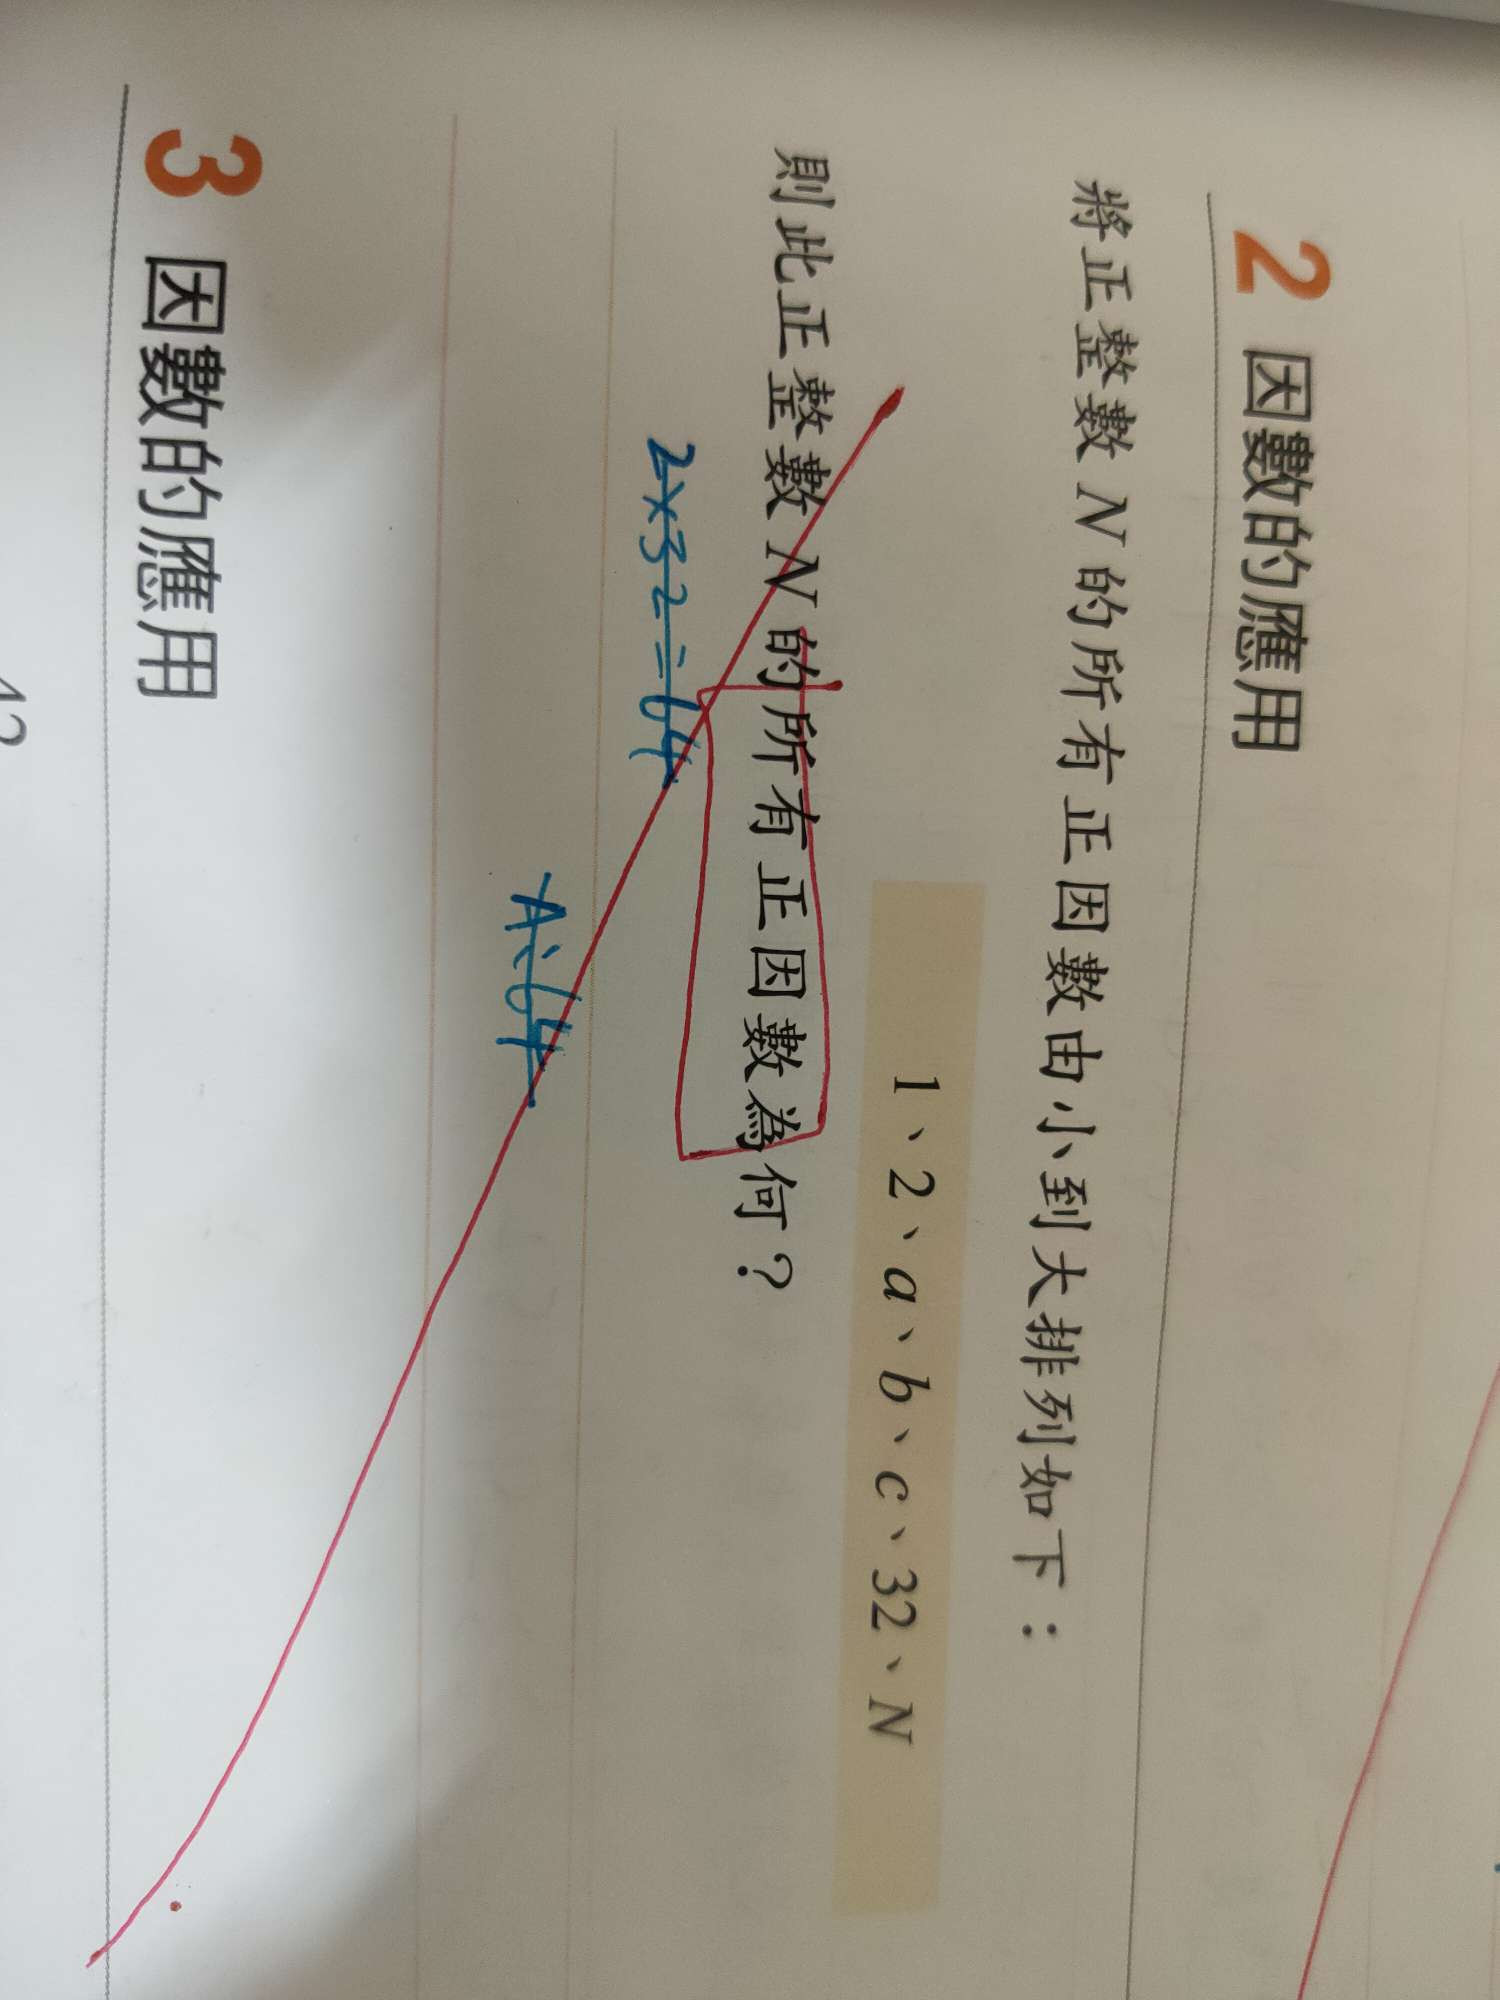 2 因數的應用
將正整數 N 的所有正因數由小到大排列如下：
1、2、a、b、c、32、N
則此正整數 N 的所有正因數為何？
2×32=64
A:64
3 因數的應用